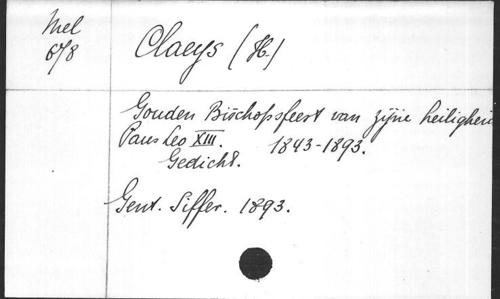 Mel
678
Claeys (H.)
Gouden Bisschopsfeest van zijne heiligheid
Paus Leo XIII. 1843-1893.
Gedicht.
Gent. Siffer. 1893.